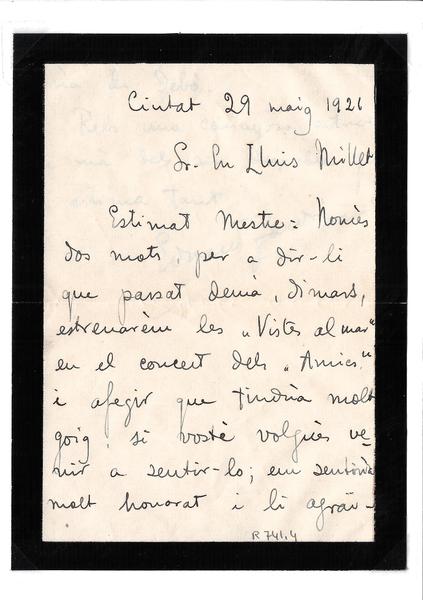 Ciutat 29 maig 1921
Sr. En Lluis Millet
Estimat Mestre = Només
dos mots per a dir-li
que passat demà, dimars,
estrenarèm les "Vistes al mar"
en el concert dels "Amics"
i afegir que tindria molt
goig si vostè volgués ve-
nir a sentir-lo; em sentiria
molt honorat i li agraï-
R 741.4